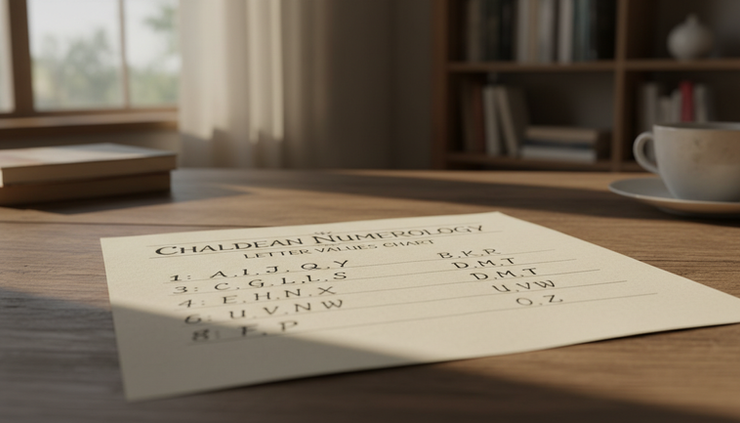 CHALDEAN NUMEROLOGY
LETTER VALUES CHART
1: A.I.J.Q.Y B.K.R
3: C.G.L.L.S D.M.T
4: E.H.N.X D.M.T
6: U.V.N.W U.VW
8: F.P O.Z